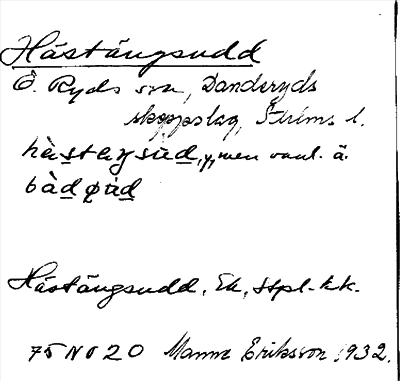 Hästängsudd
Ö. Ryds sn, Danderyds
skeppslag, Sthlms l.
hästäŋsùd, men vanl. ä.
bàd
Hästängsudd, Ek, stpl-kk.
75 NO 20 Manne Eriksson 1932.